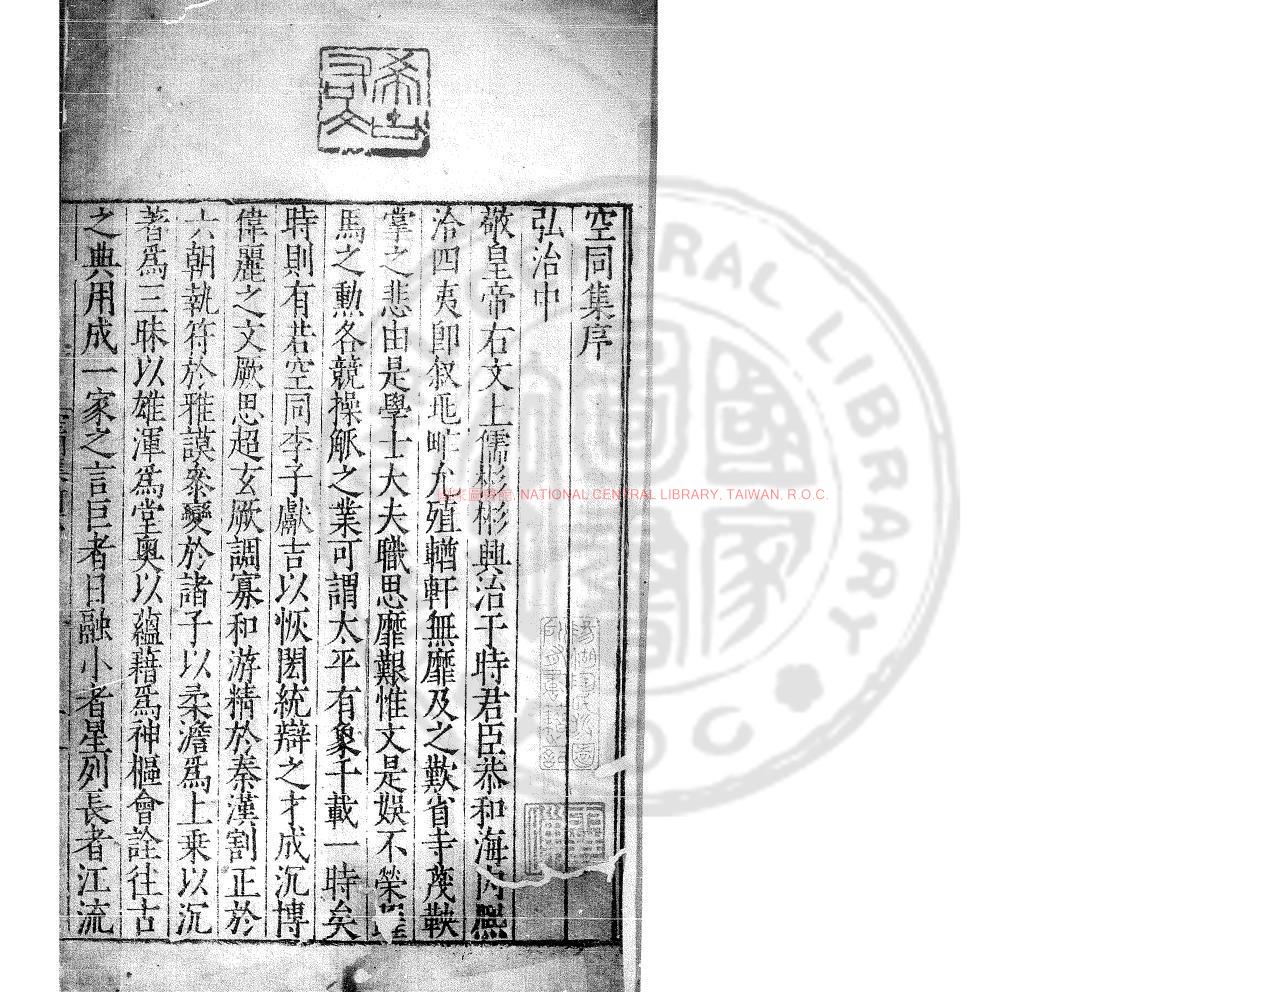 空同集序
弘治中
敬皇帝右文上儒彬彬興治于時君臣恭和海內熈
洽四夷卽叙兆甿允殖輶軒無靡及之歎省寺蔑鞅
掌之悲由是學士大夫職思靡艱惟文是娛不榮
馬之勲各競操觚之業可謂太平有象千載一時矣
時則有若空同李子獻吉以恢閎統辯之才成沉博
偉麗之文厥思超玄厥調寡和游精於秦漢割正於
六朝執符於雅謨叅變於諸子以柔澹爲上乗以沉
著爲三昧以雄渾爲堂奧以蘊藉爲神樞會詮往古
之典用成一家之言巨者日融小者星列長者江流
希古右文
國家圖書館, NATIONAL CENTRAL LIBRARY, TAIWAN, R.O.C.